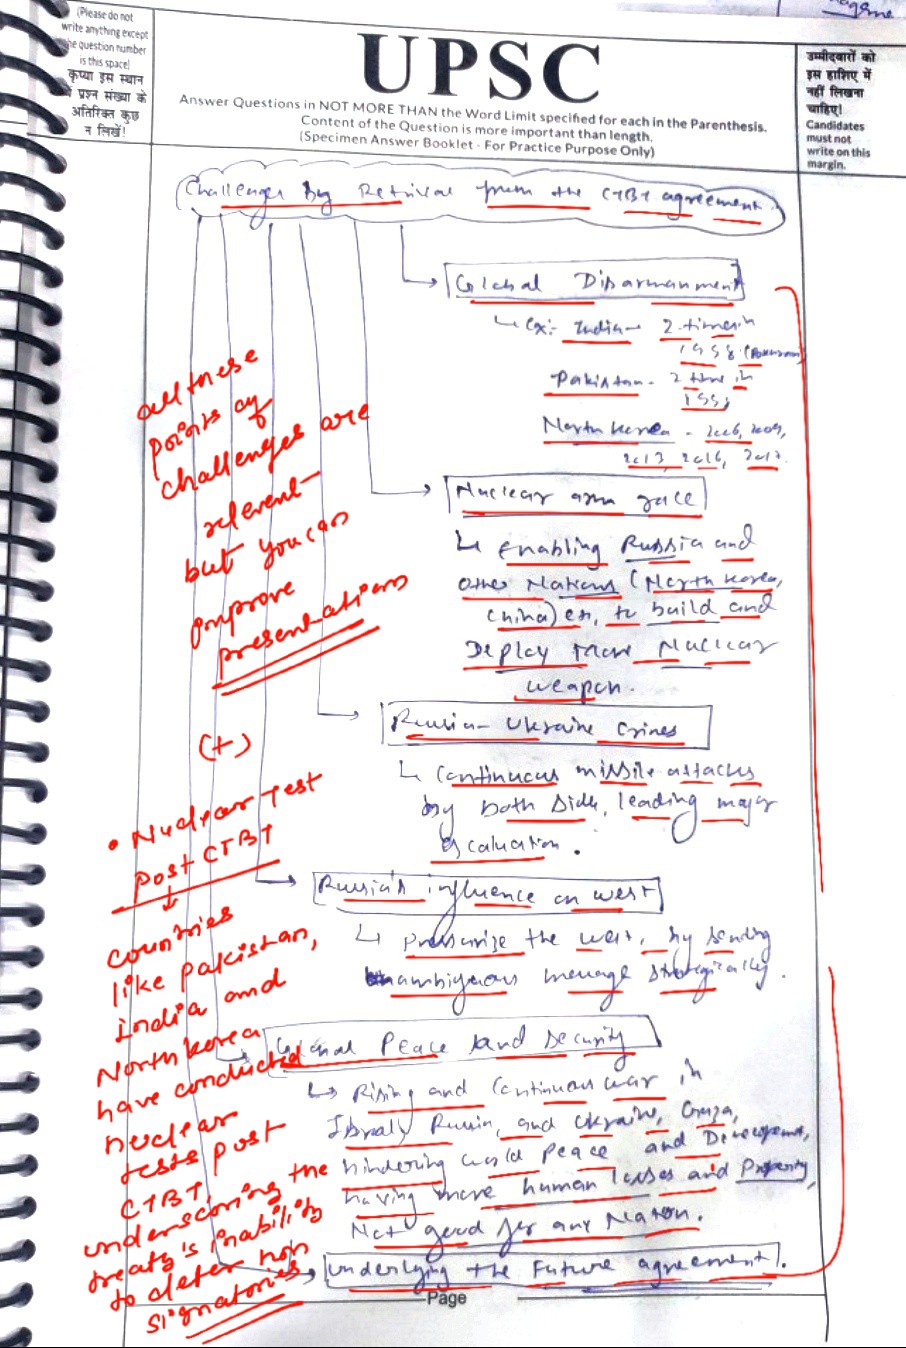 (Please do not
write anything except
the question number
is this space)
कृप्या इस स्थान
में प्रश्न संख्या के
अतिरिक्त कुछ
न लिखें!
UPSC
Answer Questions in NOT MORE THAN the Word Limit specified for each in the Parenthesis.
Content of the Question is more important than length.
(Specimen Answer Booklet - For Practice Purpose Only)
उम्मीदवारों को
इस हाशिए में
नहीं लिखना
चाहिए!
Candidates
must not
write on this
margin.
Challenges by Retrival from the CTBT agreement.
Global Disarmanment
ex:- India - 2 times in
1998 (Pokhran)
Pakistan - 2 time in
North Korea - 2006, 2009,
2013, 2016, 2017.
all these
points of
challenges are
relevent
but you can
improve
presentations
Nuclear arm race
enabling Russia and
other Nations (North Korea,
China) etc, to build and
Deploy more Nuclear
weapon.
Russia - Ukraine Crises
Continuous missile attacks
by both side, leading major
escaluation.
(+)
• Nuclear Test
post CTBT
countries
like pakistan,
India and
North korea
have conducted
nuclear
tests post
CTBT
underscoring the
treaty's inability
to deter non
signatories
Russia's influence on west
pressurize the west, by sending
ambiguous message strategically.
Global Peace and Security
Rising and Continuous war in
Russia, and Ukraine, Gaza,
hindering world Peace and Development,
having more human losses and Property,
Not good for any Nation.
underlying the Future agreement.
Page